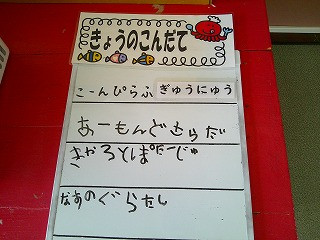 きょうのこんだて
こーんぴらふ ぎゅうにゅう
あーもんどさらだ
まかろにぽたーじゅ
なすのぐらたん